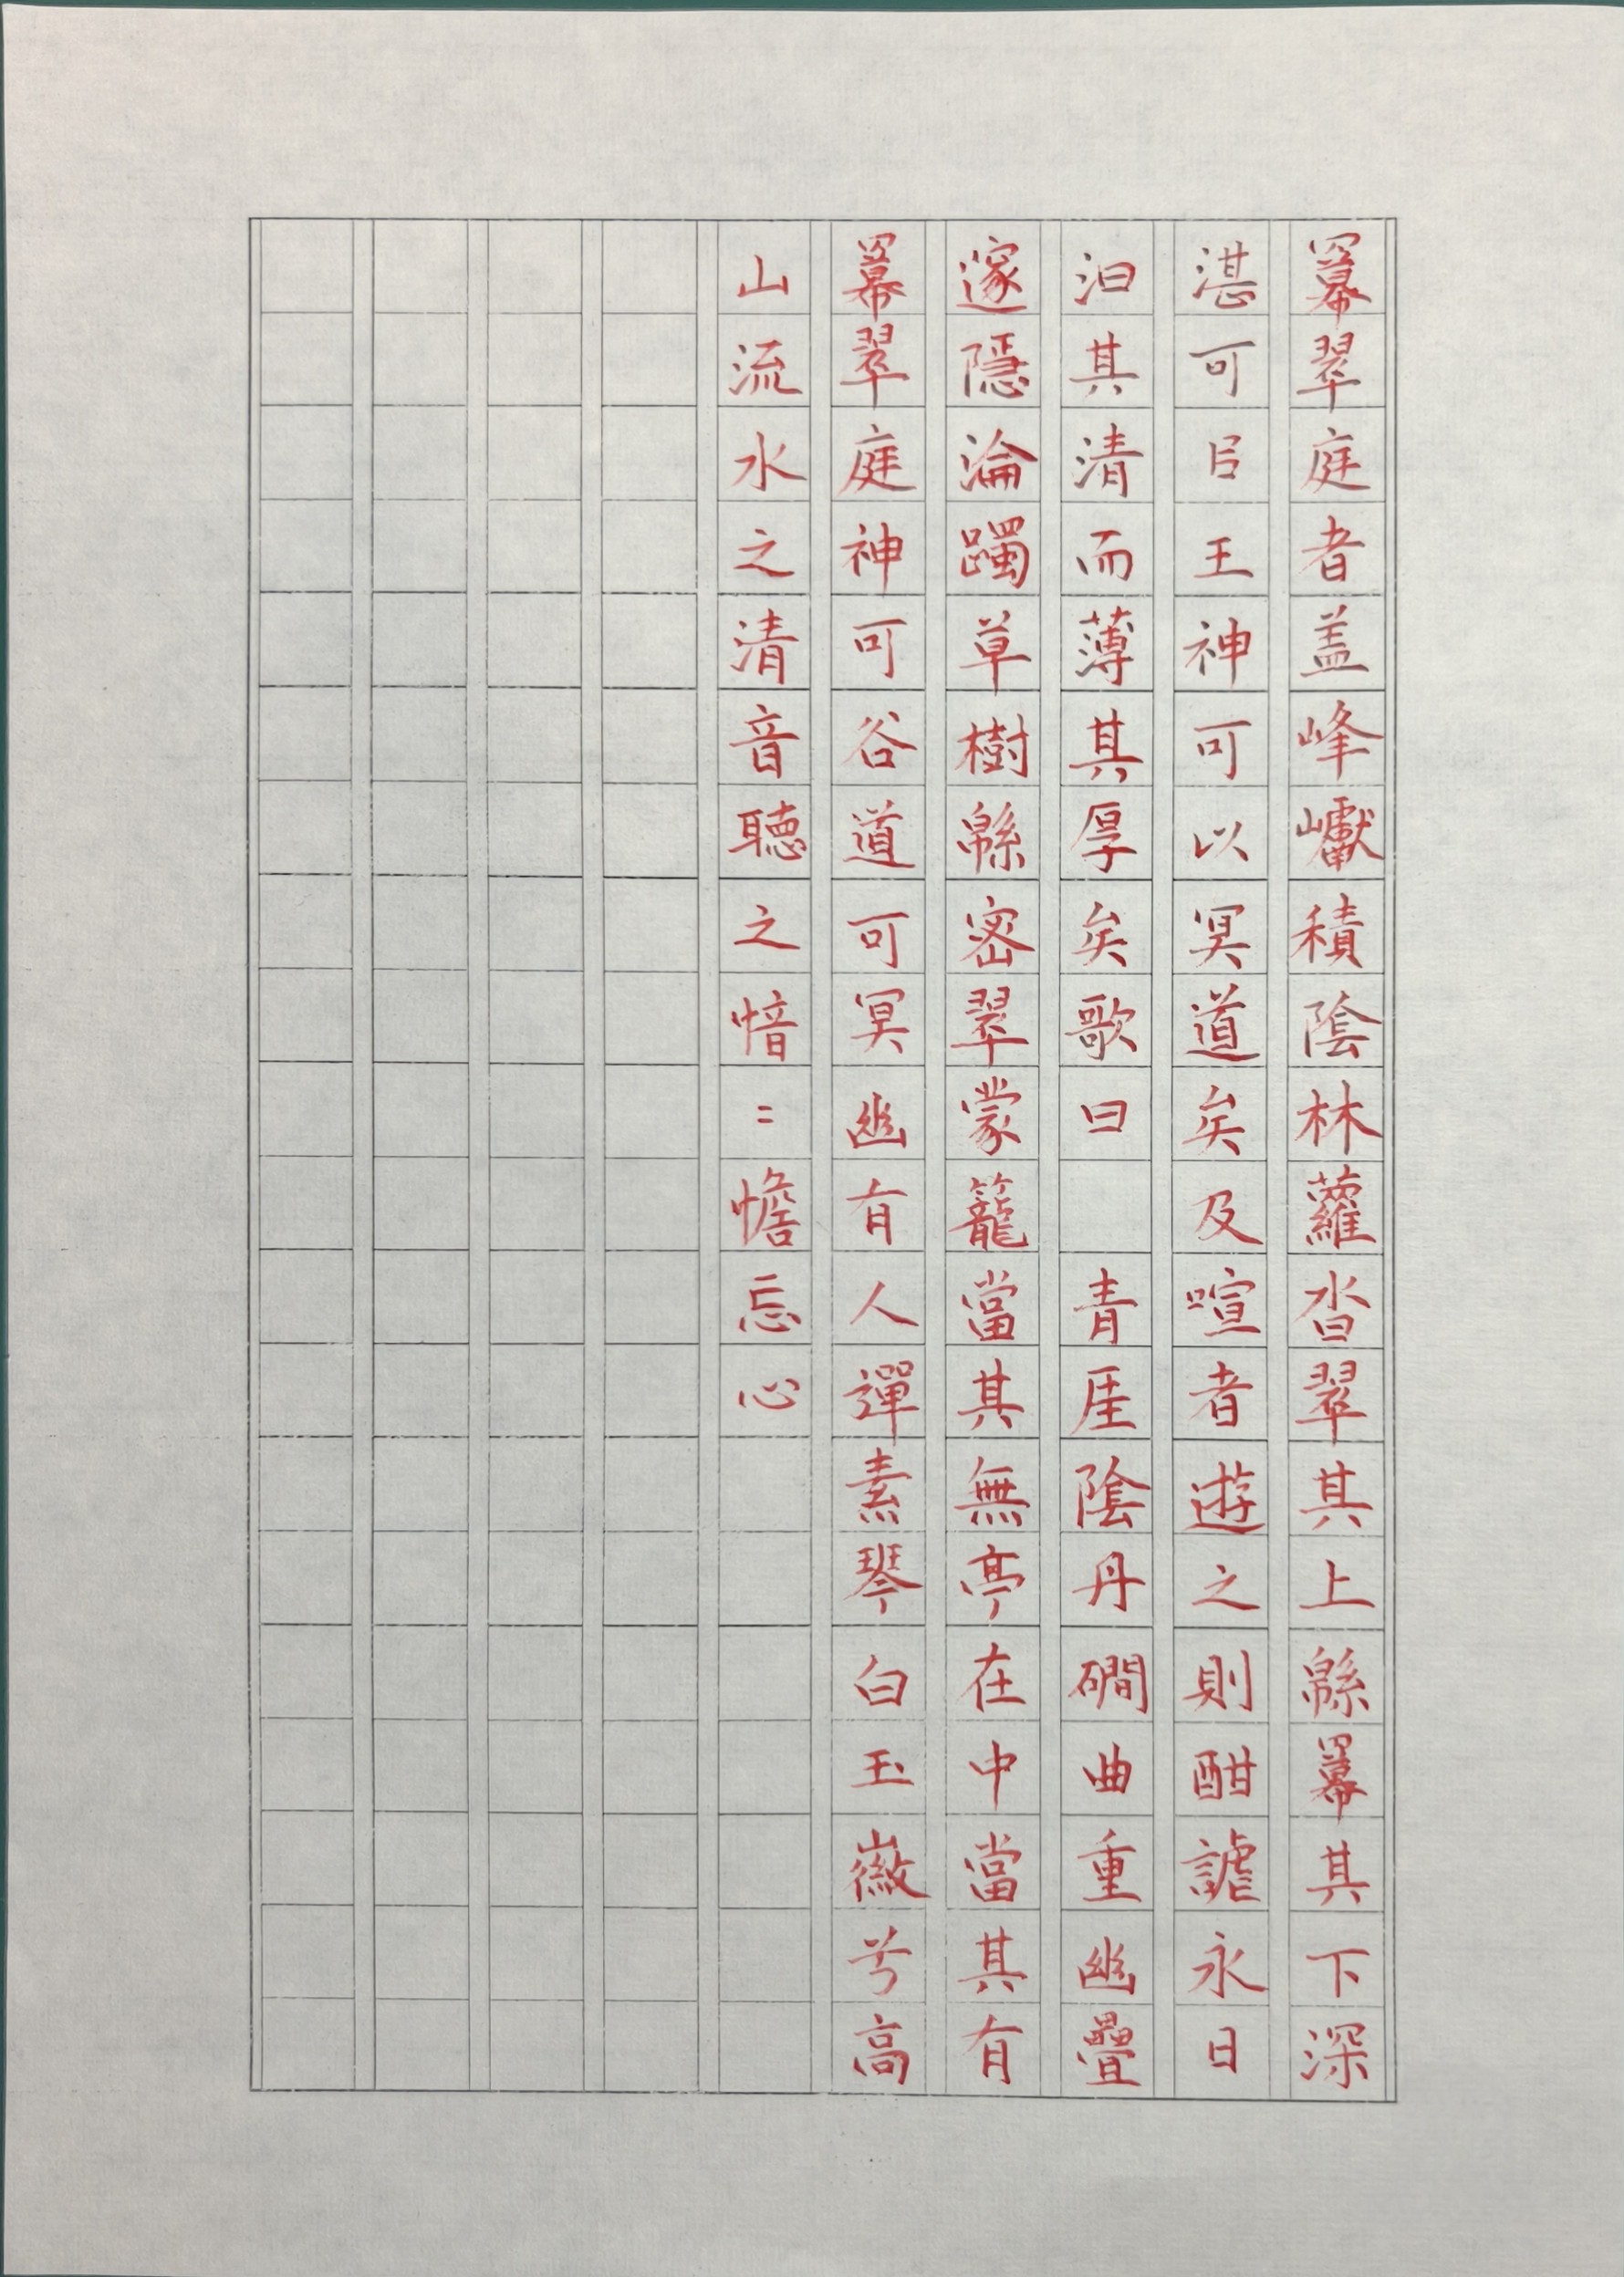 羃翠庭者盖峰巘積陰林蘿沓翠其上緜羃其下深
湛可㠯王神可以冥道矣及喧者遊之則酣謔永日
汩其清而薄其厚矣歌曰 青厓陰丹磵曲重幽疊
邃隱淪躅草樹緜密翠蒙籠當其無亭在中當其有
羃翠庭神可谷道可冥幽有人彈素琴白玉徽兮高
山流水之清音聽之愔=憺忘心